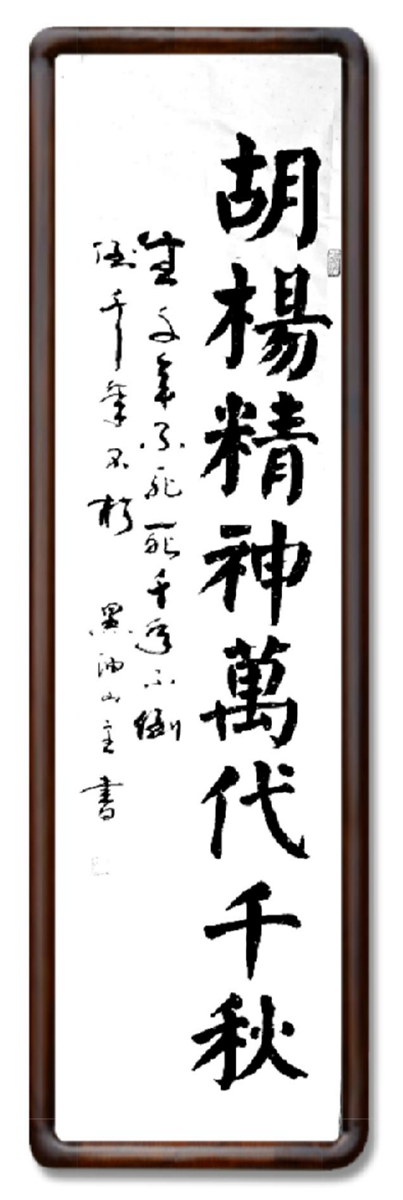 胡楊精神萬代千秋
生千年不死死千年不倒
倒千年不朽 黑油山主書